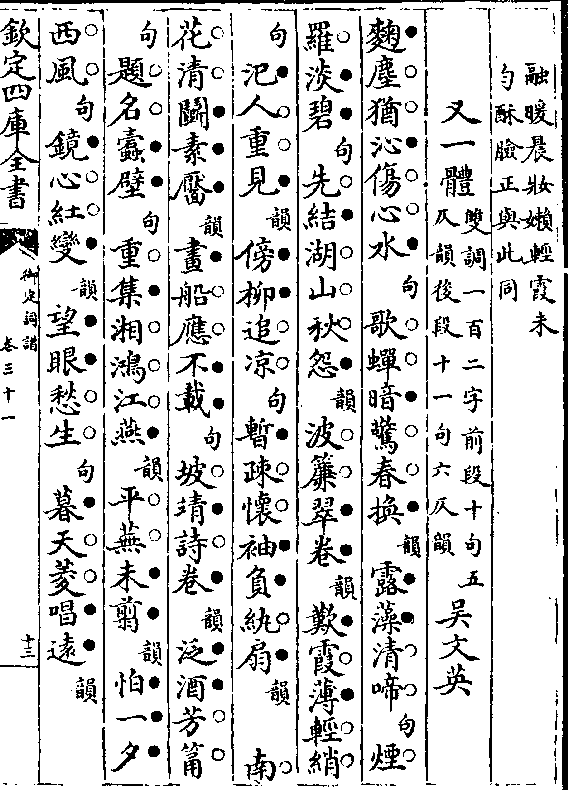 融暖晨妝嬾輕霞未
勻酥臉正與此同
又一體
雙調一百二字前段十句五
仄韻後段十一句六仄韻
吴文英
麴塵猶沁傷心水句歌蟬暗驚春換韻露藻清啼句煙
羅淡碧句先結湖山秋怨韻波簾翠卷韻歎霞薄輕綃
句氾人重見韻傍柳追凉句暫疎懷袖負紈扇韻南
花清鬬素靨韻畫船應不載句坡靖詩卷韻泛酒芳筩
句題名蠹壁句重集湘鴻江燕韻平蕪未剪韻怕一夕
西風句鏡心紅變韻望眼愁生句暮天菱唱遠韻
欽定四庫全書
御定詞譜
卷三十一
十三